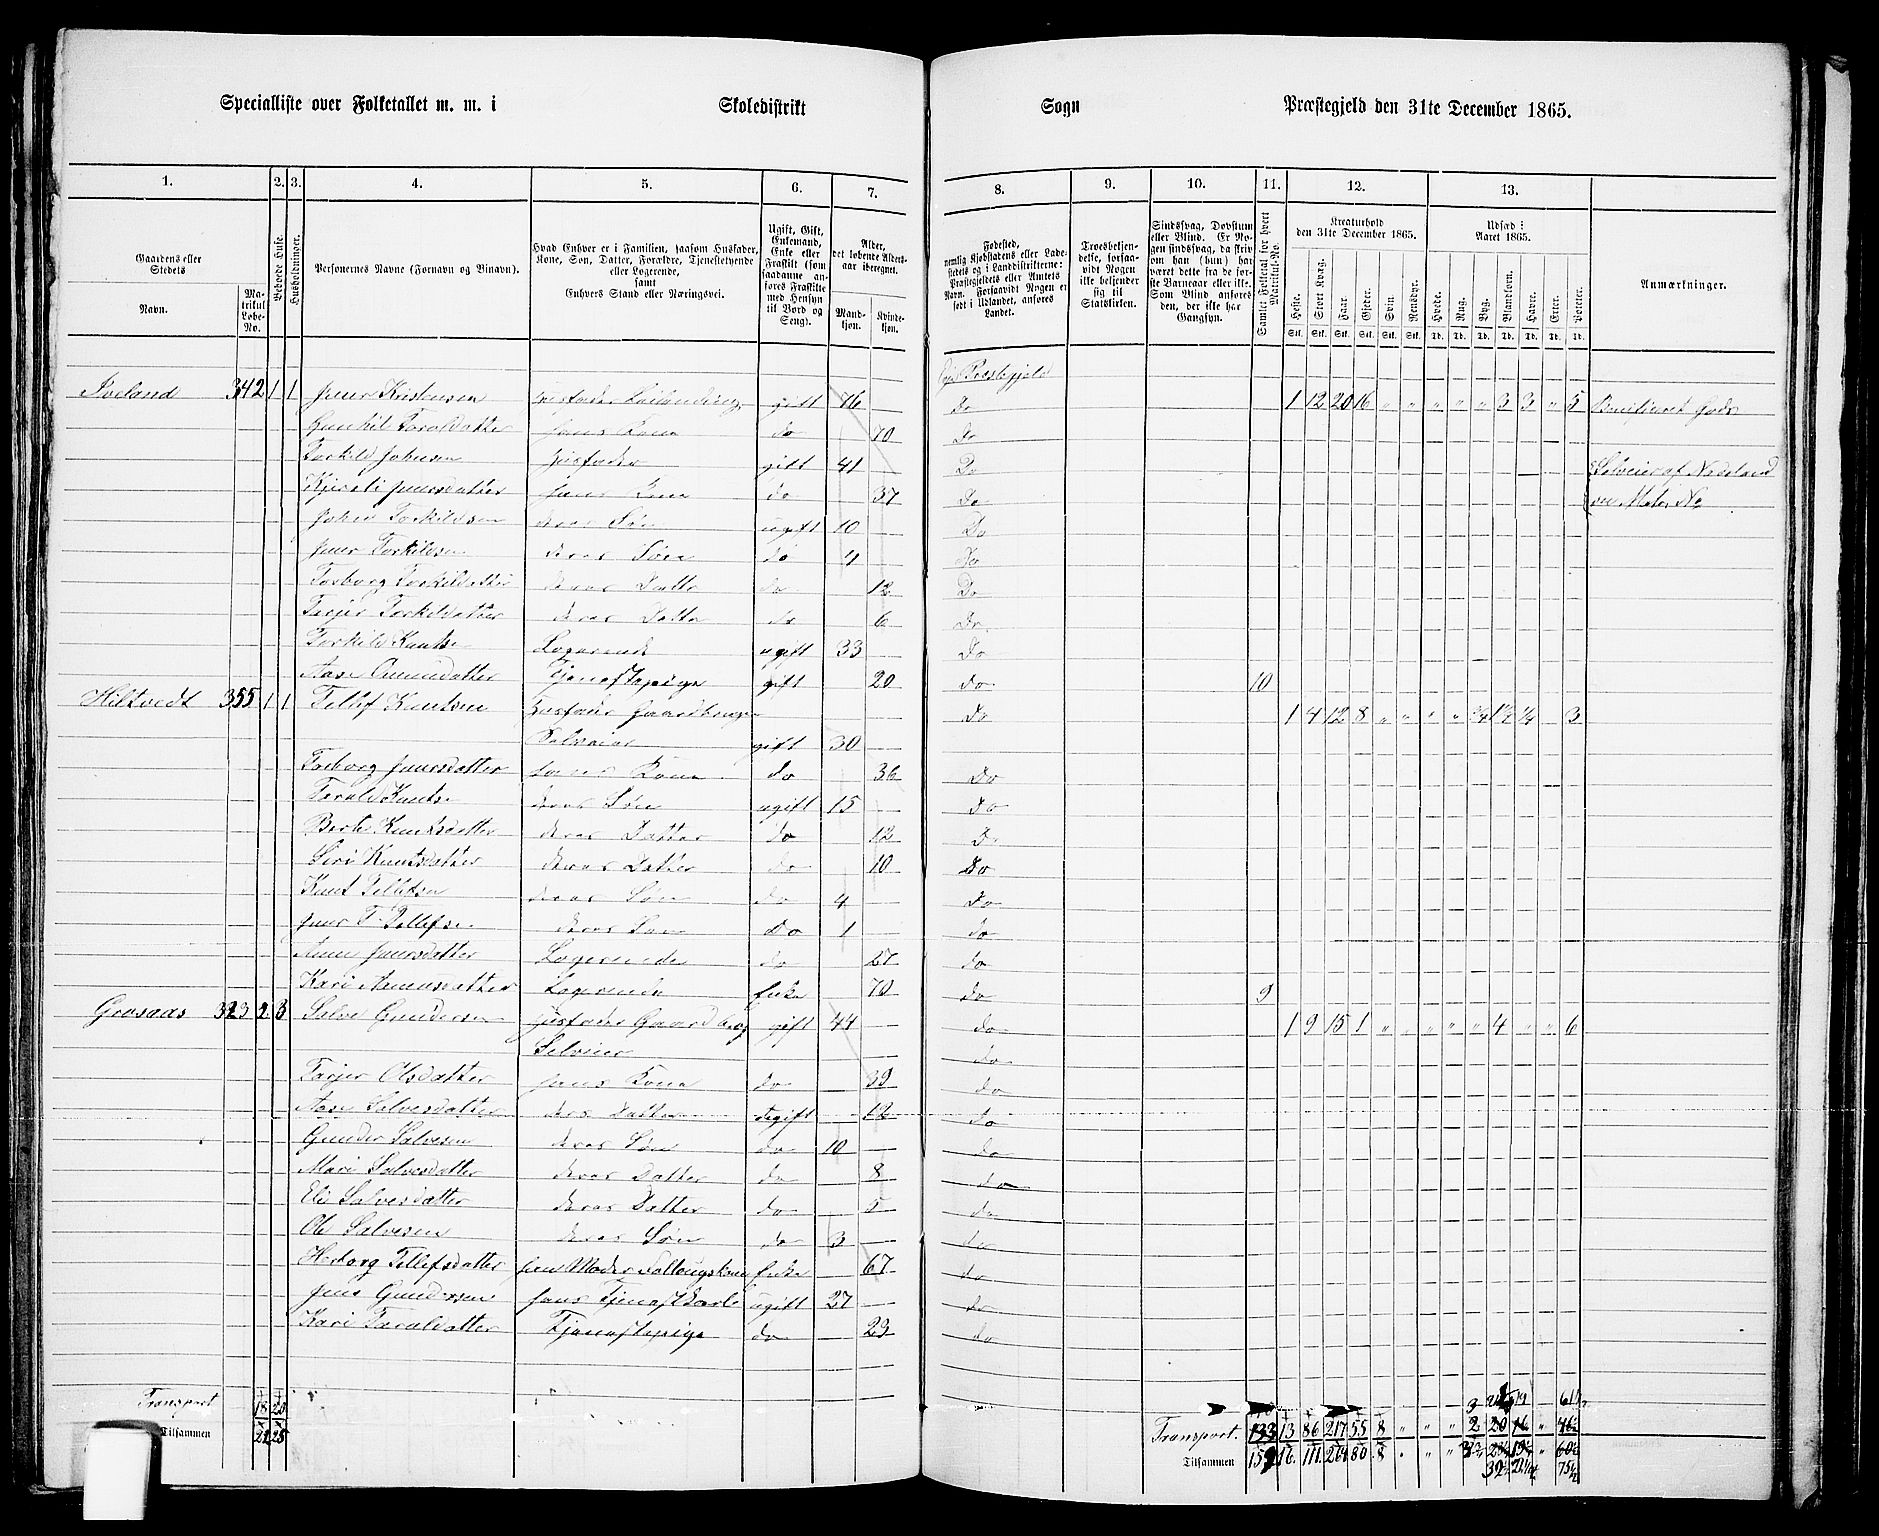 Specialliste over Folketallet m. m. i Skoledistrikt
Sogn Præstegjeld den 31te December 1865.
1. 2. 3. 4. 5. 6. 7.
8. 9. 10. 11. 12. 13.
Gaardens eller Stedets
Navn. Matrikul Løbe-No.
Beboede Huse.
Husholdninger.
Personernes Navne (Fornavn og Tilnavn).
Hvad Enhver er i Familien, saasom Husfader, Kone, Søn, Datter, Forældre, Tjenestetyende eller Logerende, samt Enhvers Stand eller Næringsvei.
Ugift, Gift, Enkemand, Enke eller Fraskilt (som saadanne anføres Fraskilte med Hensyn til Bord og Seng).
Alder, det løbende Aldersaar iberegnet.
Mandkjøn. Kvindekjøn.
Fødested, nemlig Kjøbstadens eller Ladestedets og i Landdistrikterne: Præstegjeldets eller Amtets Navn. Forsaavidt Nogen er født i Udlandet, anføres Landet.
Troesbekjendelse, forsaavidt Nogen ikke bekjender sig til Statskirken.
Sindssvag, Døvstum eller Blind. Er Nogen sindssvag, da skrives om han (hun) har været dette fra de første Barneaar eller ikke. Som Blind anføres den, der ikke har Gangsyn.
Samlet Folketal for hvert Matrikul-No.
Kreaturhold den 31te December 1865.
Heste. Stort Kvæg. Faar. Gjeder. Svin. Rensdyr.
Udsæd i Aaret 1865.
Hvede. Rug. Byg. Blandkorn. Havre. Erter. Poteter.
Anmærkninger.
Præstegjeld
Iveland 342 1 1 Jens Kristensen gift 76 Do 1 12 20 16 " " " " " 3 3 " 5 Gods
Gunhil Taraldatter hans Kone do 70 Do
Torkild Johnsen Husfader gift 41 Do Selveier af
Kjersti Jensdatter hans Kone do 37 Do
John Torkildsen deres Søn ugift 10 Do
Jens Torkildsen deres Søn do 4 Do
Torborg Torkildsdatter deres Datter do 12 Do
Tarjer Torkildsdatter deres Datter do 6 Do
Torkild Knuts. Logerende ugift 33 Do
Aase Tjenestepige gift 20 do 10
Hiltvedt 355 1 1 Tellef Knutsen Husfader Gaardbruger Do 1 4 12 8 " " " " 3/4 1 1/2 1/4 3
Selveier gift 30
Torborg Jensdatter hans Kone do 36 Do
Tarald Knuts. deres Søn ugift 15 Do
Berte Knutsdatter deres Datter do 12 Do
Siri Knutsdatter deres Datter do 10 Do
Knut Tellefsen deres Søn do 4 Do
Jens T. Tellefsen deres Søn Do 1 do
Anne Jensdatter Logerende do 27 do
Kari Logerende Enke 70 do 9
323 2 3 Salve Gundersen Husfader Gaardbrug gift 44 do 1 9 15 1 " " " " " 4 " " 6
Selveier do
Tarjer Olsdatter hans Kone do 39 do
Aase Salvesdatter deres Datter ugift 12 do
Gunder Salvesen deres Søn do 10 do
Mari Salvesdatter deres Datter do 8 do
Eli Salvesdatter deres Datter do 5 do
Ole Salvesen deres Søn do 3 do
Herborg Tellefsdatter hans Moder Enke 67 do
Jens Gundersen hans Tjenestkarl ugift 27 do
Kari Taraldatter Tjenestepige do 23 do
Transport 18 20
Tilsammen 22 25
Transport. 133 13 86 217 55 8 " " " 2 20 16 "
Tilsammen 152 16. 111. 264 80. 8